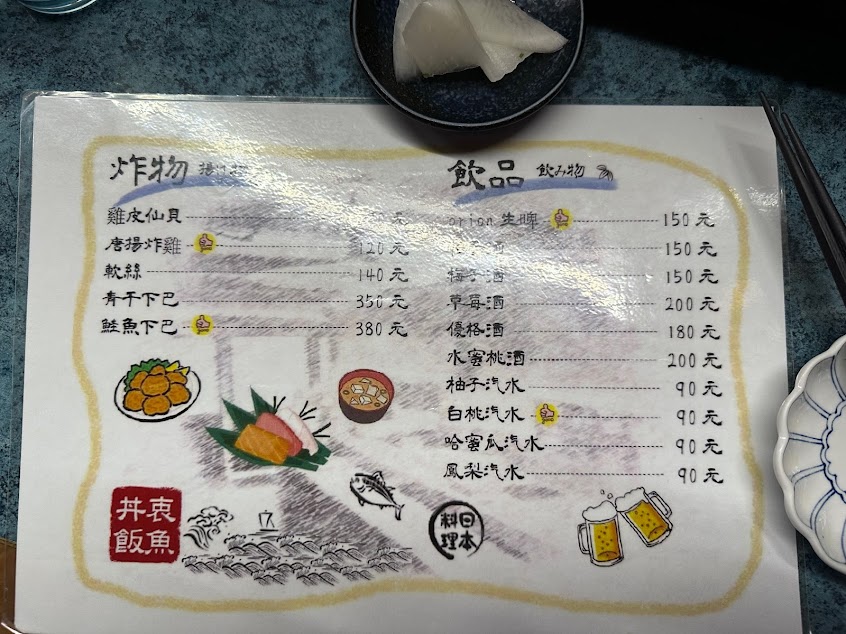 炸物
雞皮仙貝 元
唐揚炸雞 120 元
軟絲 140 元
青干下巴 350 元
鮭魚下巴 380 元
飲品 飲み物
orion 生啤 150 元
酒 150 元
梅子酒 150 元
草莓酒 200 元
優格酒 180 元
水蜜桃酒 200 元
柚子汽水 90 元
白桃汽水 90 元
哈蜜瓜汽水 90 元
鳳梨汽水 90 元
衷魚
丼飯
日本
料理